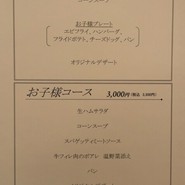 コーンスープ
お子様プレート
エビフライ、ハンバーグ、
フライドポテト、チーズドッグ、パン
オリジナルデザート
お子様コース 3,000円(税込 3,300円)
生ハムサラダ
コーンスープ
スパゲッティミートソース
牛フィレ肉のポアレ 温野菜添え
パン